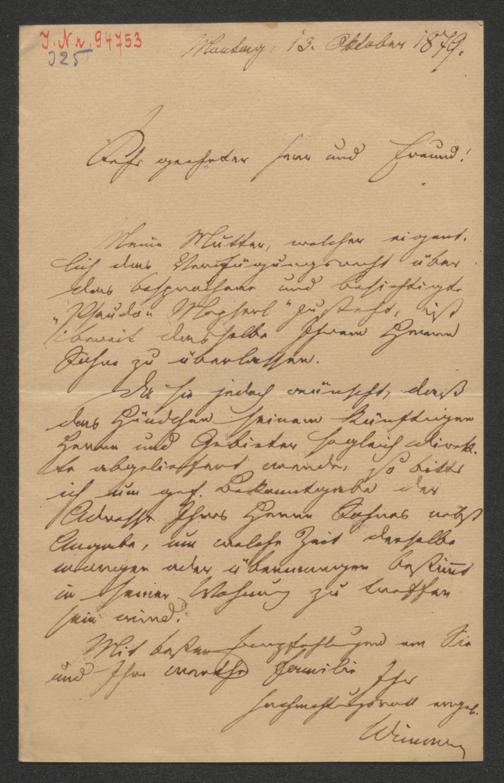 J. Nr. 94753
325
Montag, 13. Oktober 1879.
Sehr geehrter Herr und Freund!
Meine Mutter, welcher eigent-
lich das Verfügungsrecht über
das besprochene und besichtigte
"Pseudo" Mopserl" zusteht, ist
bereit dasselbe Ihrem Herrn
Sohne zu überlassen.
Da sie jedoch wünscht, daß
das Hündchen seinem künftigen
Herrn und Gebieter sogleich direk-
te abgeliefert werde, so bitte
ich um gef. Bekanntgabe der
Adresse Ihres Herrn Sohnes nebst
Angabe, um welche Zeit derselbe
morgen oder übermorgen bestimmt
in seiner Wohnung zu treffen
sein wird.
Mit besten Empfehlungen an Sie
und Ihre werthe Familie Ihr
hochachtungsvoll ergeb.